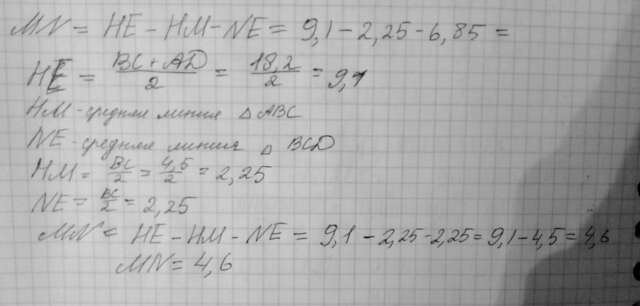 MN = HE - HM - NE = 9,1 - 2,25 - 6,85 =
HE = BC + AD / 2 = 18,2 / 2 = 9,1
HM - средняя линия △ ABC
NE - средняя линия △ BCD
HM = BC / 2 = 4,5 / 2 = 2,25
NE = BC / 2 = 2,25
MN = HE - HM - NE = 9,1 - 2,25 - 2,25 = 9,1 - 4,5 = 4,6
MN = 4,6